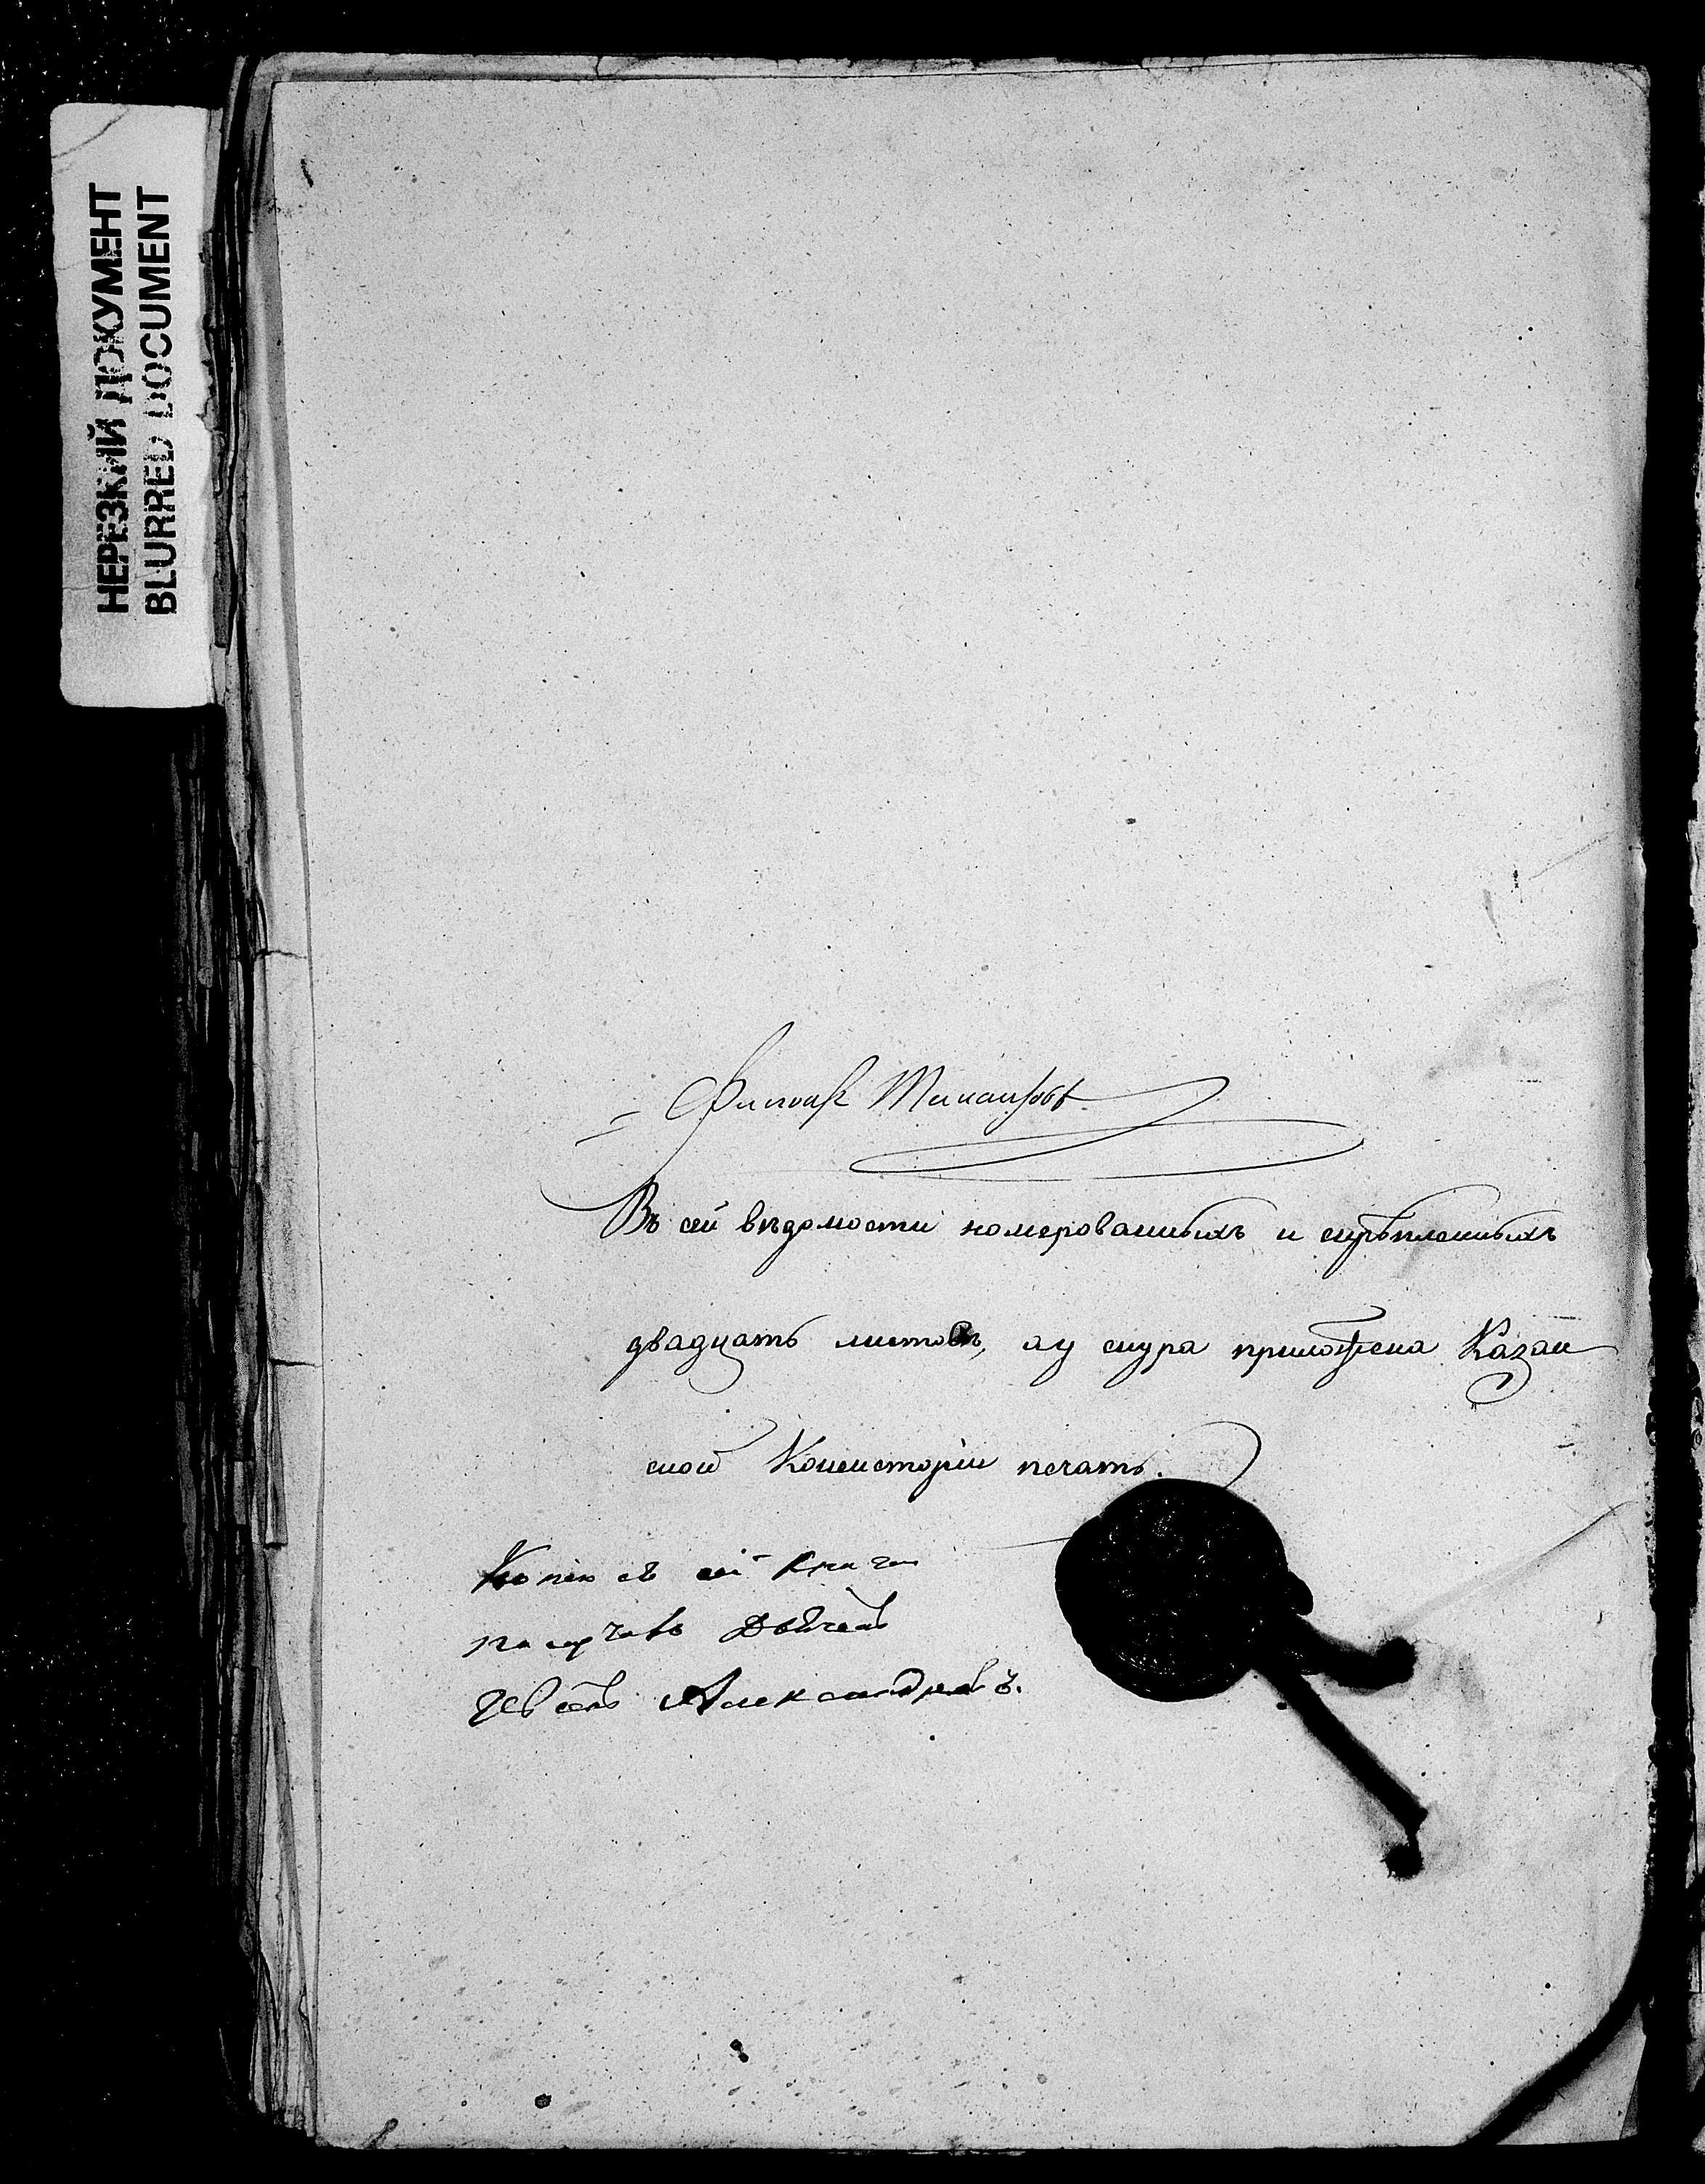 НЕРЕЗКИЙ ДОКУМЕНТ
BLURRED DOCUMENT
Въ сей вѣдомости номерованныхъ и скрѣпленныхъ
двадцать листовъ, а у снура приложена Казан
ской Консисторіи печать.
Копію съ сей книги
получавъ Дьячекъ
Александровъ.